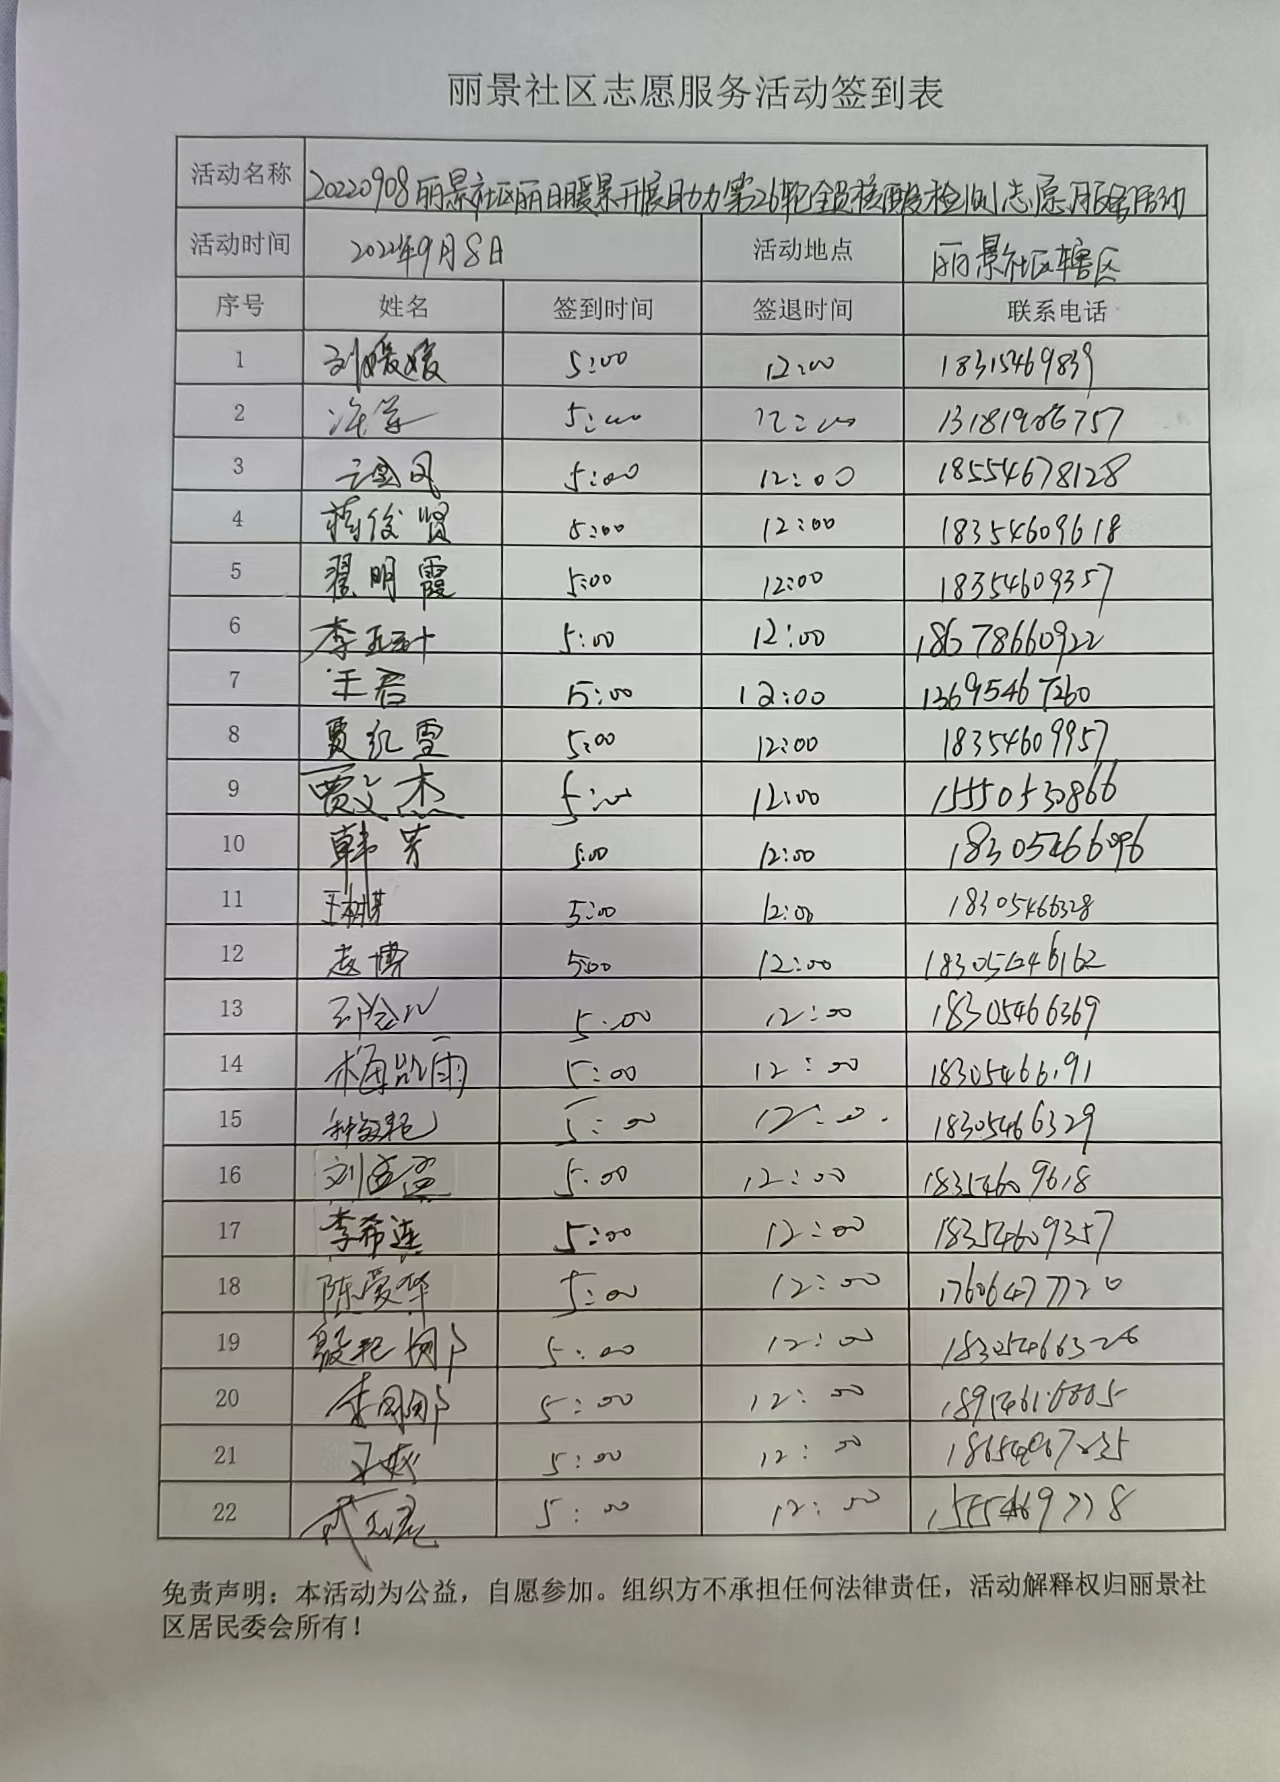 丽景社区志愿服务活动签到表
活动名称 20220908丽景社区丽日暖景开展助力第26轮全员核酸检测志愿服务活动
活动时间 2022年9月8日 活动地点 丽景社区辖区
序号 姓名 签到时间 签退时间 联系电话
1 刘媛媛 5:00 12:00 18315469839
2 5:00 12:00 13181986757
3 5:00 12:00 18554678128
4 蒋俊贤 5:00 12:00 18354609618
5 翟明霞 5:00 12:00 18354609357
6 5:00 12:00 18678660922
7 王君 5:00 12:00 13695467260
8 贾红雪 5:00 12:00 18354609957
9 贾文杰 5:00 12:00 15550530866
10 韩芳 5:00 12:00 18305466096
11 王树棋 5:00 12:00 18305466328
12 志博 5:00 12:00
13 5:00 12:00 18305466369
14 梅韶雨 5:00 12:00 18305466191
15 5:00 12:00 18305466329
16 刘孟孟 5:00 12:00 18354609618
17 李希连 5:00 12:00 18354609357
18 陈爱华 5:00 12:00 17606477720
19 5:00 12:00 18305466326
20 李丽娜 5:00 12:00
21 5:00 12:00
22 5:00 12:00
免责声明：本活动为公益，自愿参加。组织方不承担任何法律责任，活动解释权归丽景社
区居民委会所有！